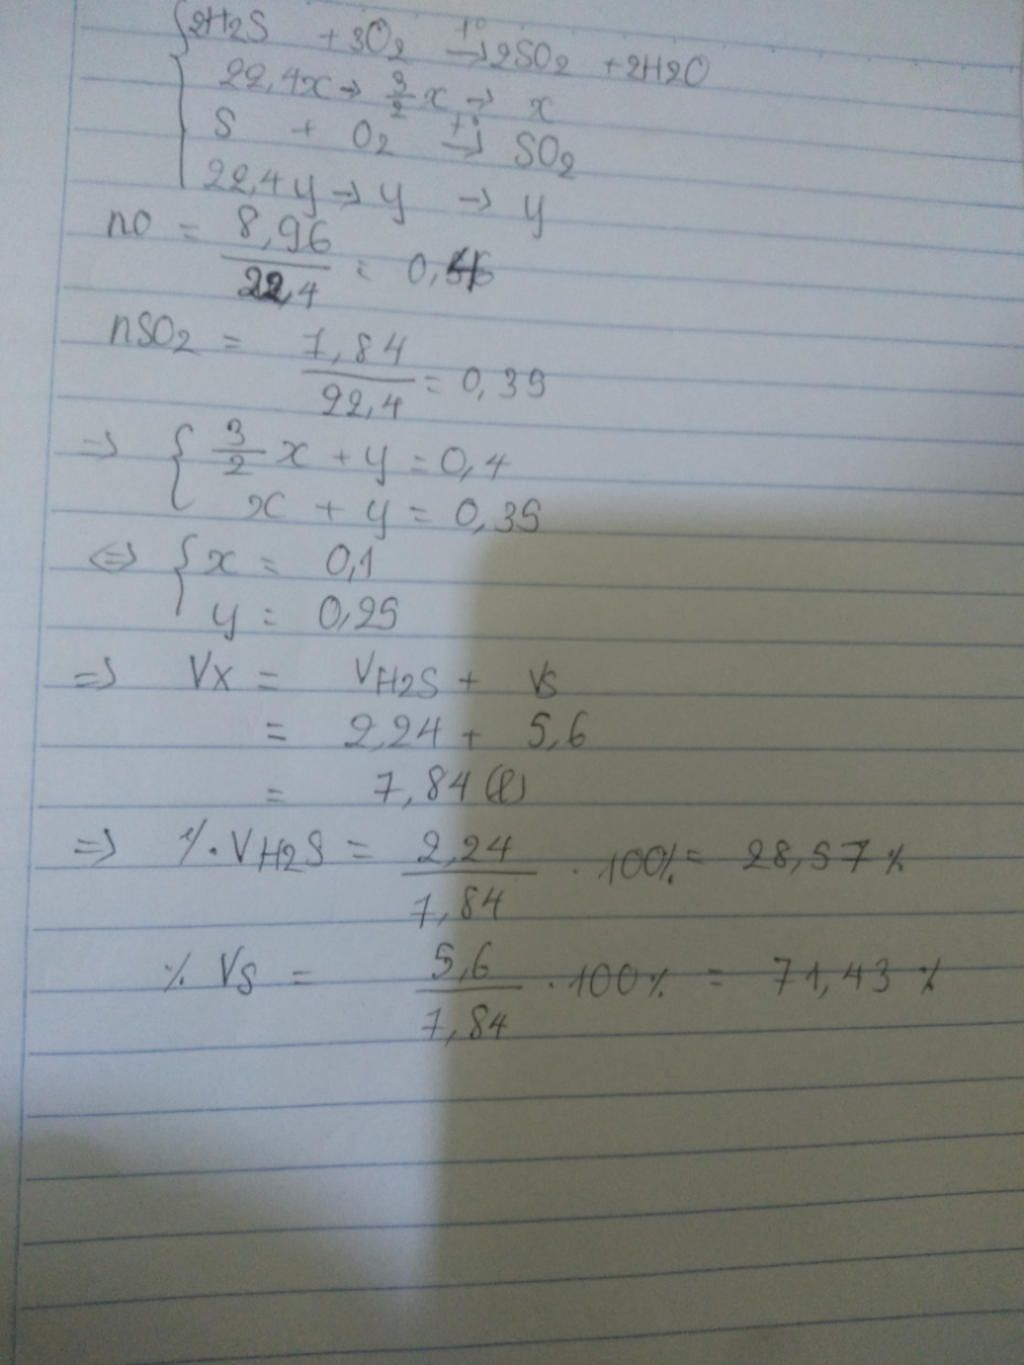 2H2S + 3O2 t°→ 2SO2 + 2H2O
22,4x → 3/2 x → x
S + O2 t°→ SO2
22,4y → y → y
nO = 8,96/22,4 = 0,4
nSO2 = 7,84/22,4 = 0,35
=> { 3/2 x + y = 0,4
x + y = 0,35
<=> { x = 0,1
y = 0,25
=> Vx = VH2S + VS
= 2,24 + 5,6
= 7,84 (l)
=> %.VH2S = 2,24/7,84 . 100% = 28,57%
% VS = 5,6/7,84 . 100% = 71,43%